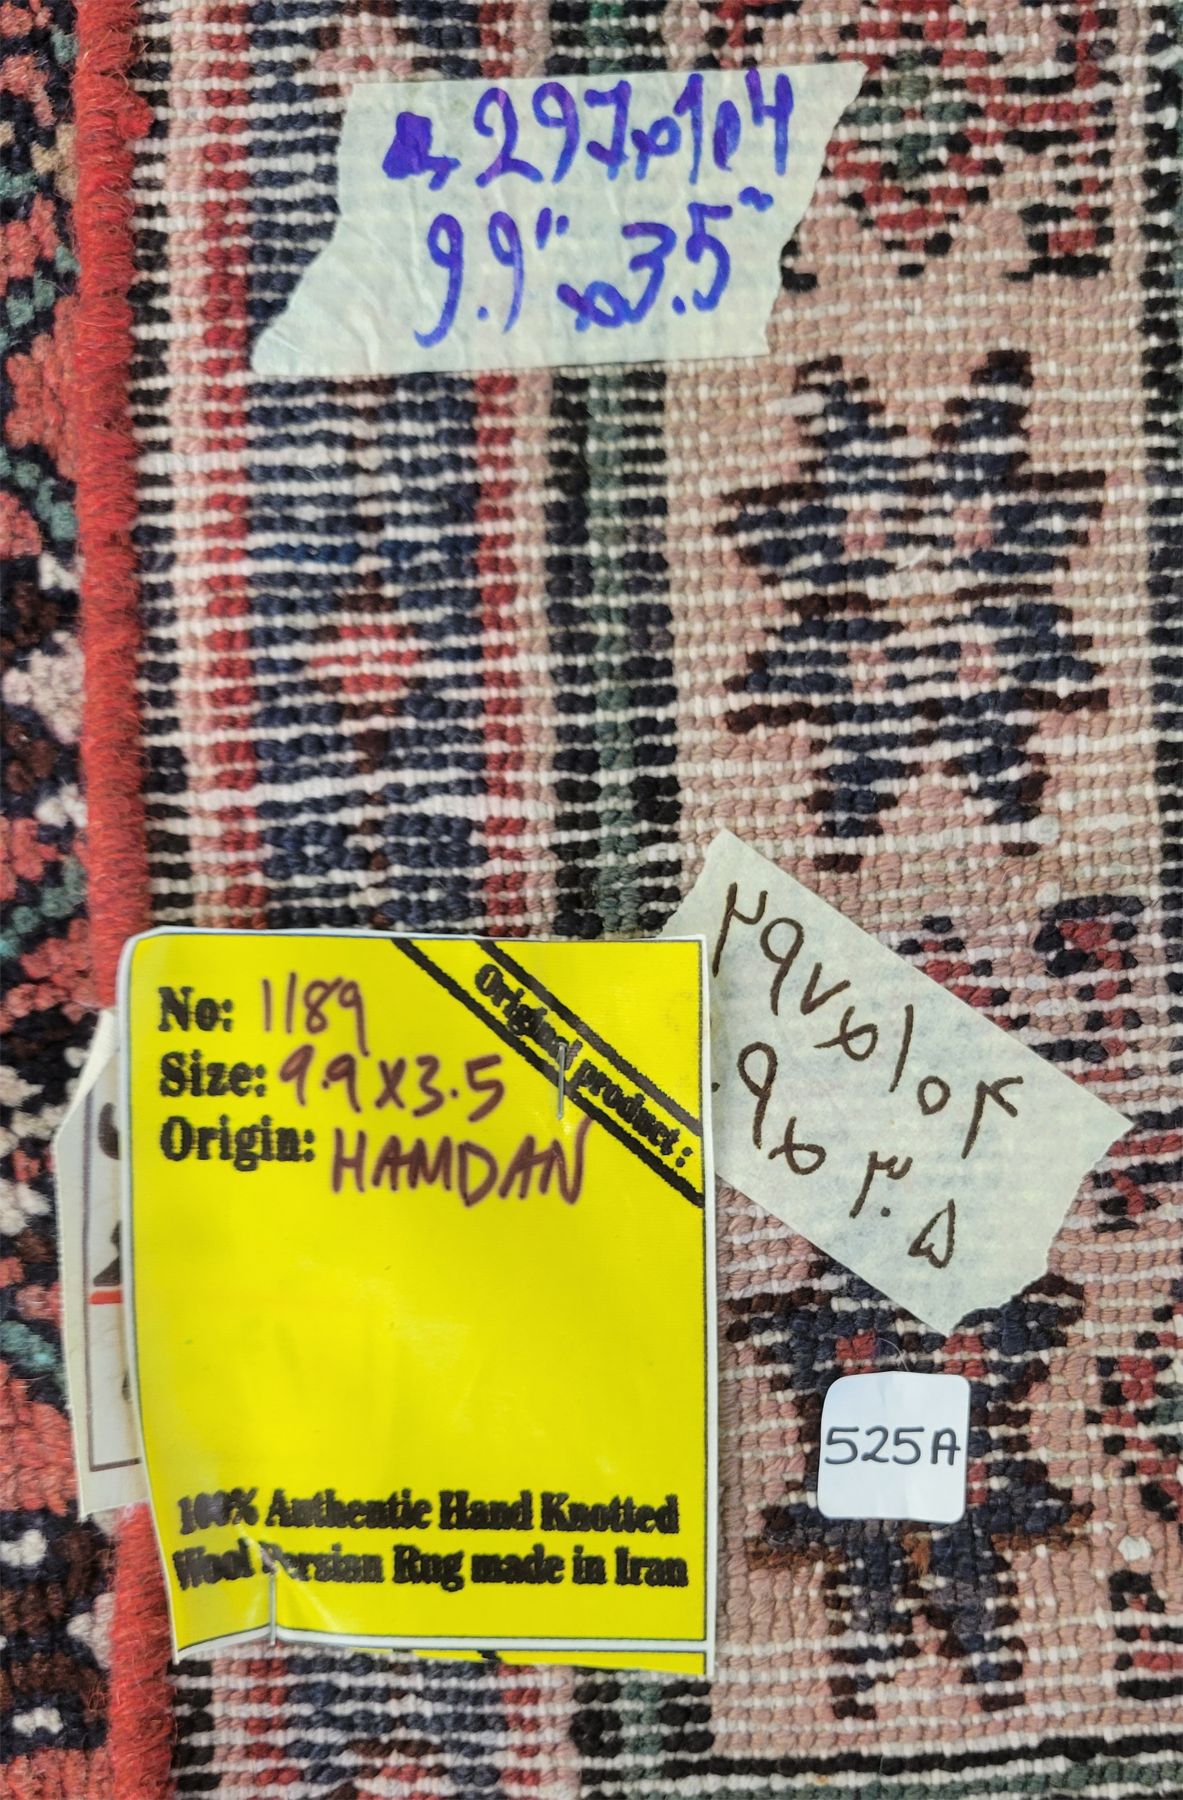 297x104
9.9"x3.5"
۲۹۷×۱۰۴
۹.۹×۳.۵
Original product :
No: 1189
Size: 9.9x3.5
Origin: HAMDAN
525A
100% Authentic Hand Knotted
Wool Persian Rug made in Iran